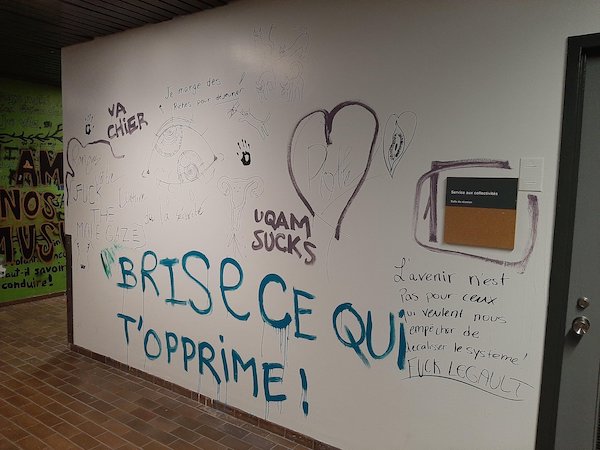 VA
CHIER
Je mange des
Riches pour déjeuner
FUCK
THE
MALE GAZE
la
I AM
NOS
MUS
faut-il savoir
conduire!
UQAM
SUCKS
Service aux collectivités
Salle de réunion
BRISE CE QUI
T'OPPRIME!
L'avenir n'est
Pas pour ceux
qui veulent nous
empêcher de
le système!
FUCK LEGAULT